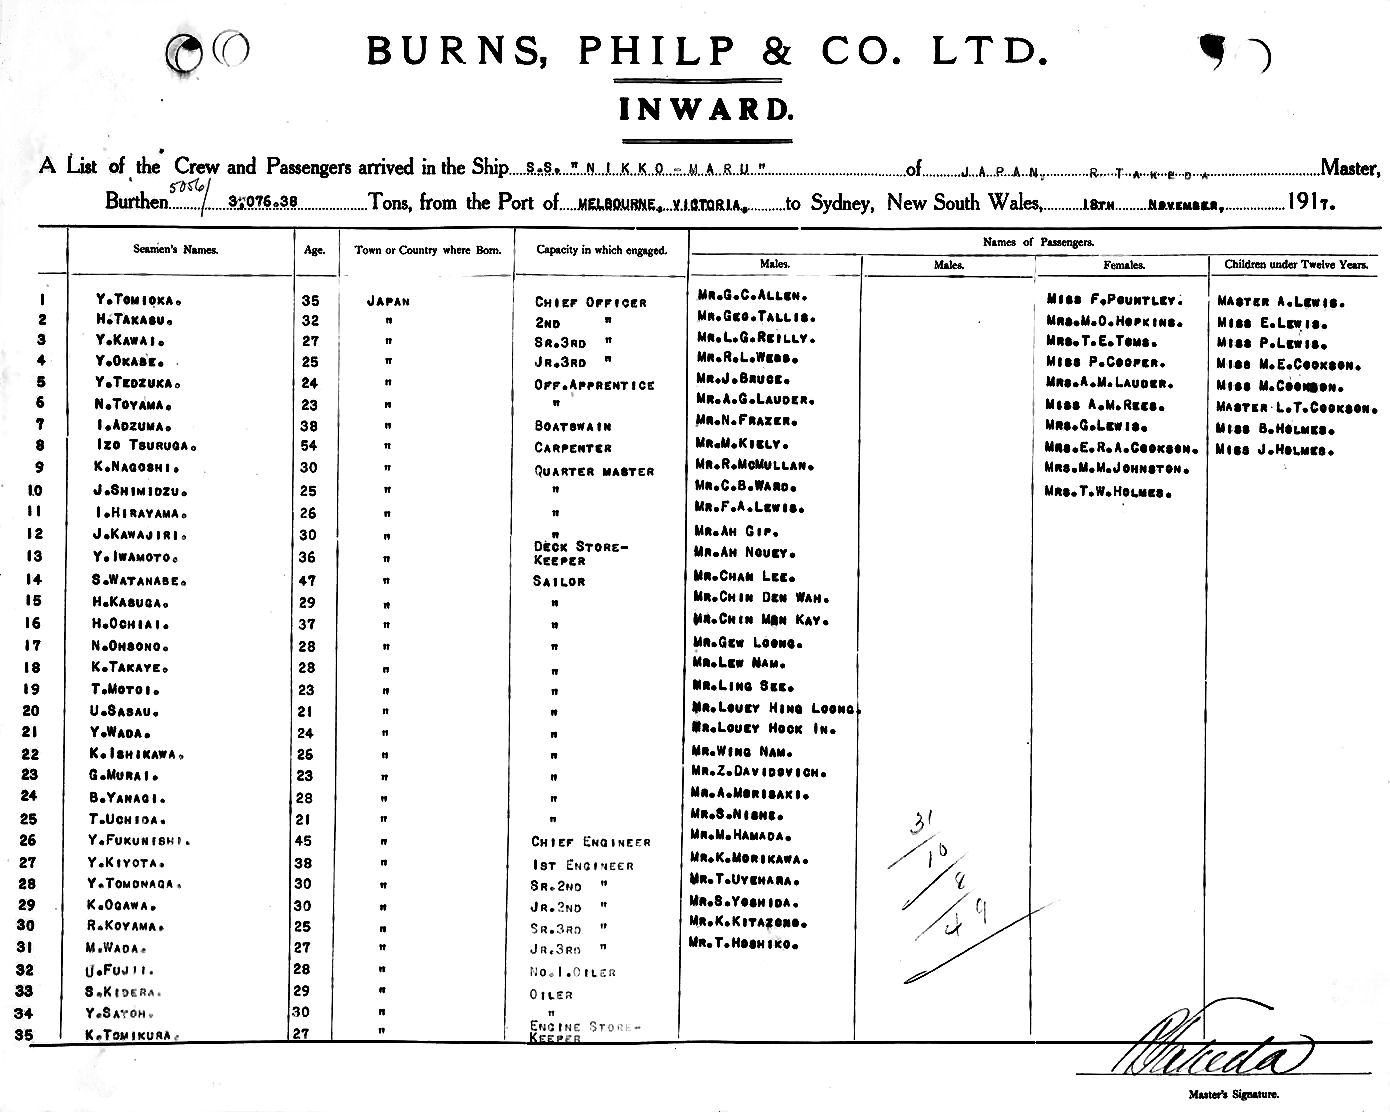 BURNS, PHILP & CO. LTD.
INWARD.
A List of the Crew and Passengers arrived in the Ship S.S. "NIKKO-MARU" of JAPAN, R TAKEDA Master,
5056/
Burthen 3,076.38 Tons, from the Port of MELBOURNE, VICTORIA, to Sydney, New South Wales, 18TH NOVEMBER, 1917.
Seamen's Names. Age. Town or Country where Born. Capacity in which engaged. Names of Passengers.
Males. Males. Females. Children under Twelve Years.
1 Y.TOMIOKA. 35 JAPAN CHIEF OFFICER MR.G.C.ALLEN. MISS F.POUNTLEY. MASTER A.LEWIS.
2 H.TAKASU. 32 " 2ND " MR.GEO.TALLIS. MRS.M.O.HOPKINS. MISS E.LEWIS.
3 Y.KAWAI. 27 " SR.3RD " MR.L.G.REILLY. MRS.T.E.TOMS. MISS P.LEWIS.
4 Y.OKABE. 25 " JR.3RD " MR.R.L.WEBB. MISS P.COOPER. MISS M.E.COOKSON.
5 Y.TEDZUKA. 24 " OFF.APPRENTICE MR.J.BRUCE. MRS.A.M.LAUDER. MISS M.COOKSON.
6 N.TOYAMA. 23 " " MR.A.G.LAUDER. MISS A.M.REES. MASTER L.T.COOKSON.
7 I.ADZUMA. 38 " BOATSWAIN MR.N.FRAZER. MRS.G.LEWIS. MISS B.HOLMES.
8 IZO TSURUGA. 54 " CARPENTER MR.M.KIELY. MRS.E.R.A.COOKSON. MISS J.HOLMES.
9 K.NAGOSHI. 30 " QUARTER MASTER MR.R.MCMULLAN. MRS.M.M.JOHNSTON.
10 J.SHIMIDZU. 25 " " MR.C.B.WARD. MRS.T.W.HOLMES.
11 I.HIRAYAMA. 26 " " MR.F.A.LEWIS.
12 J.KAWAJIRI. 30 " " MR.AH GIP.
13 Y.IWAMOTO. 36 " DECK STORE-KEEPER MR.AH NOUEY.
14 S.WATANABE. 47 " SAILOR MR.CHAN LEE.
15 H.KASUGA. 29 " " MR.CHIN DEN WAH.
16 H.OCHIAI. 37 " " MR.CHIN MAN KAY.
17 N.OHSONO. 28 " " MR.GEW LOONG.
18 K.TAKAYE. 28 " " MR.LEW NAM.
19 T.MOTOI. 23 " " MR.LING SEE.
20 U.SASAU. 21 " " MR.LOUEY HING LOONG.
21 Y.WADA. 24 " " MR.LOUEY HOCK IN.
22 K.ISHIKAWA. 26 " " MR.WING NAM.
23 G.MURAI. 23 " " MR.Z.DAVIDOVICH.
24 B.YANAGI. 28 " " MR.A.MORISAKI.
25 T.UCHIDA. 21 " " MR.S.NISHE.
26 Y.FUKUNISHI. 45 " CHIEF ENGINEER MR.M.HAMADA.
27 Y.KIYOTA. 38 " 1ST ENGINEER MR.K.MORIKAWA.
28 Y.TOMONAGA. 30 " SR.2ND " MR.T.UYEHARA.
29 K.OGAWA. 30 " JR.2ND " MR.S.YOSHIDA.
30 R.KOYAMA. 25 " SR.3RD " MR.K.KITAZONO.
31 M.WADA. 27 " JR.3RD " MR.T.HOSHIKO.
32 U.FUJII. 28 " NO.1.OILER
33 S.KIDERA. 29 " OILER
34 Y.SATOH. 30 " "
35 K.TOMIKURA. 27 " ENGINE STORE-KEEPER
31/
10/
8/
49
R Takeda
Master's Signature.